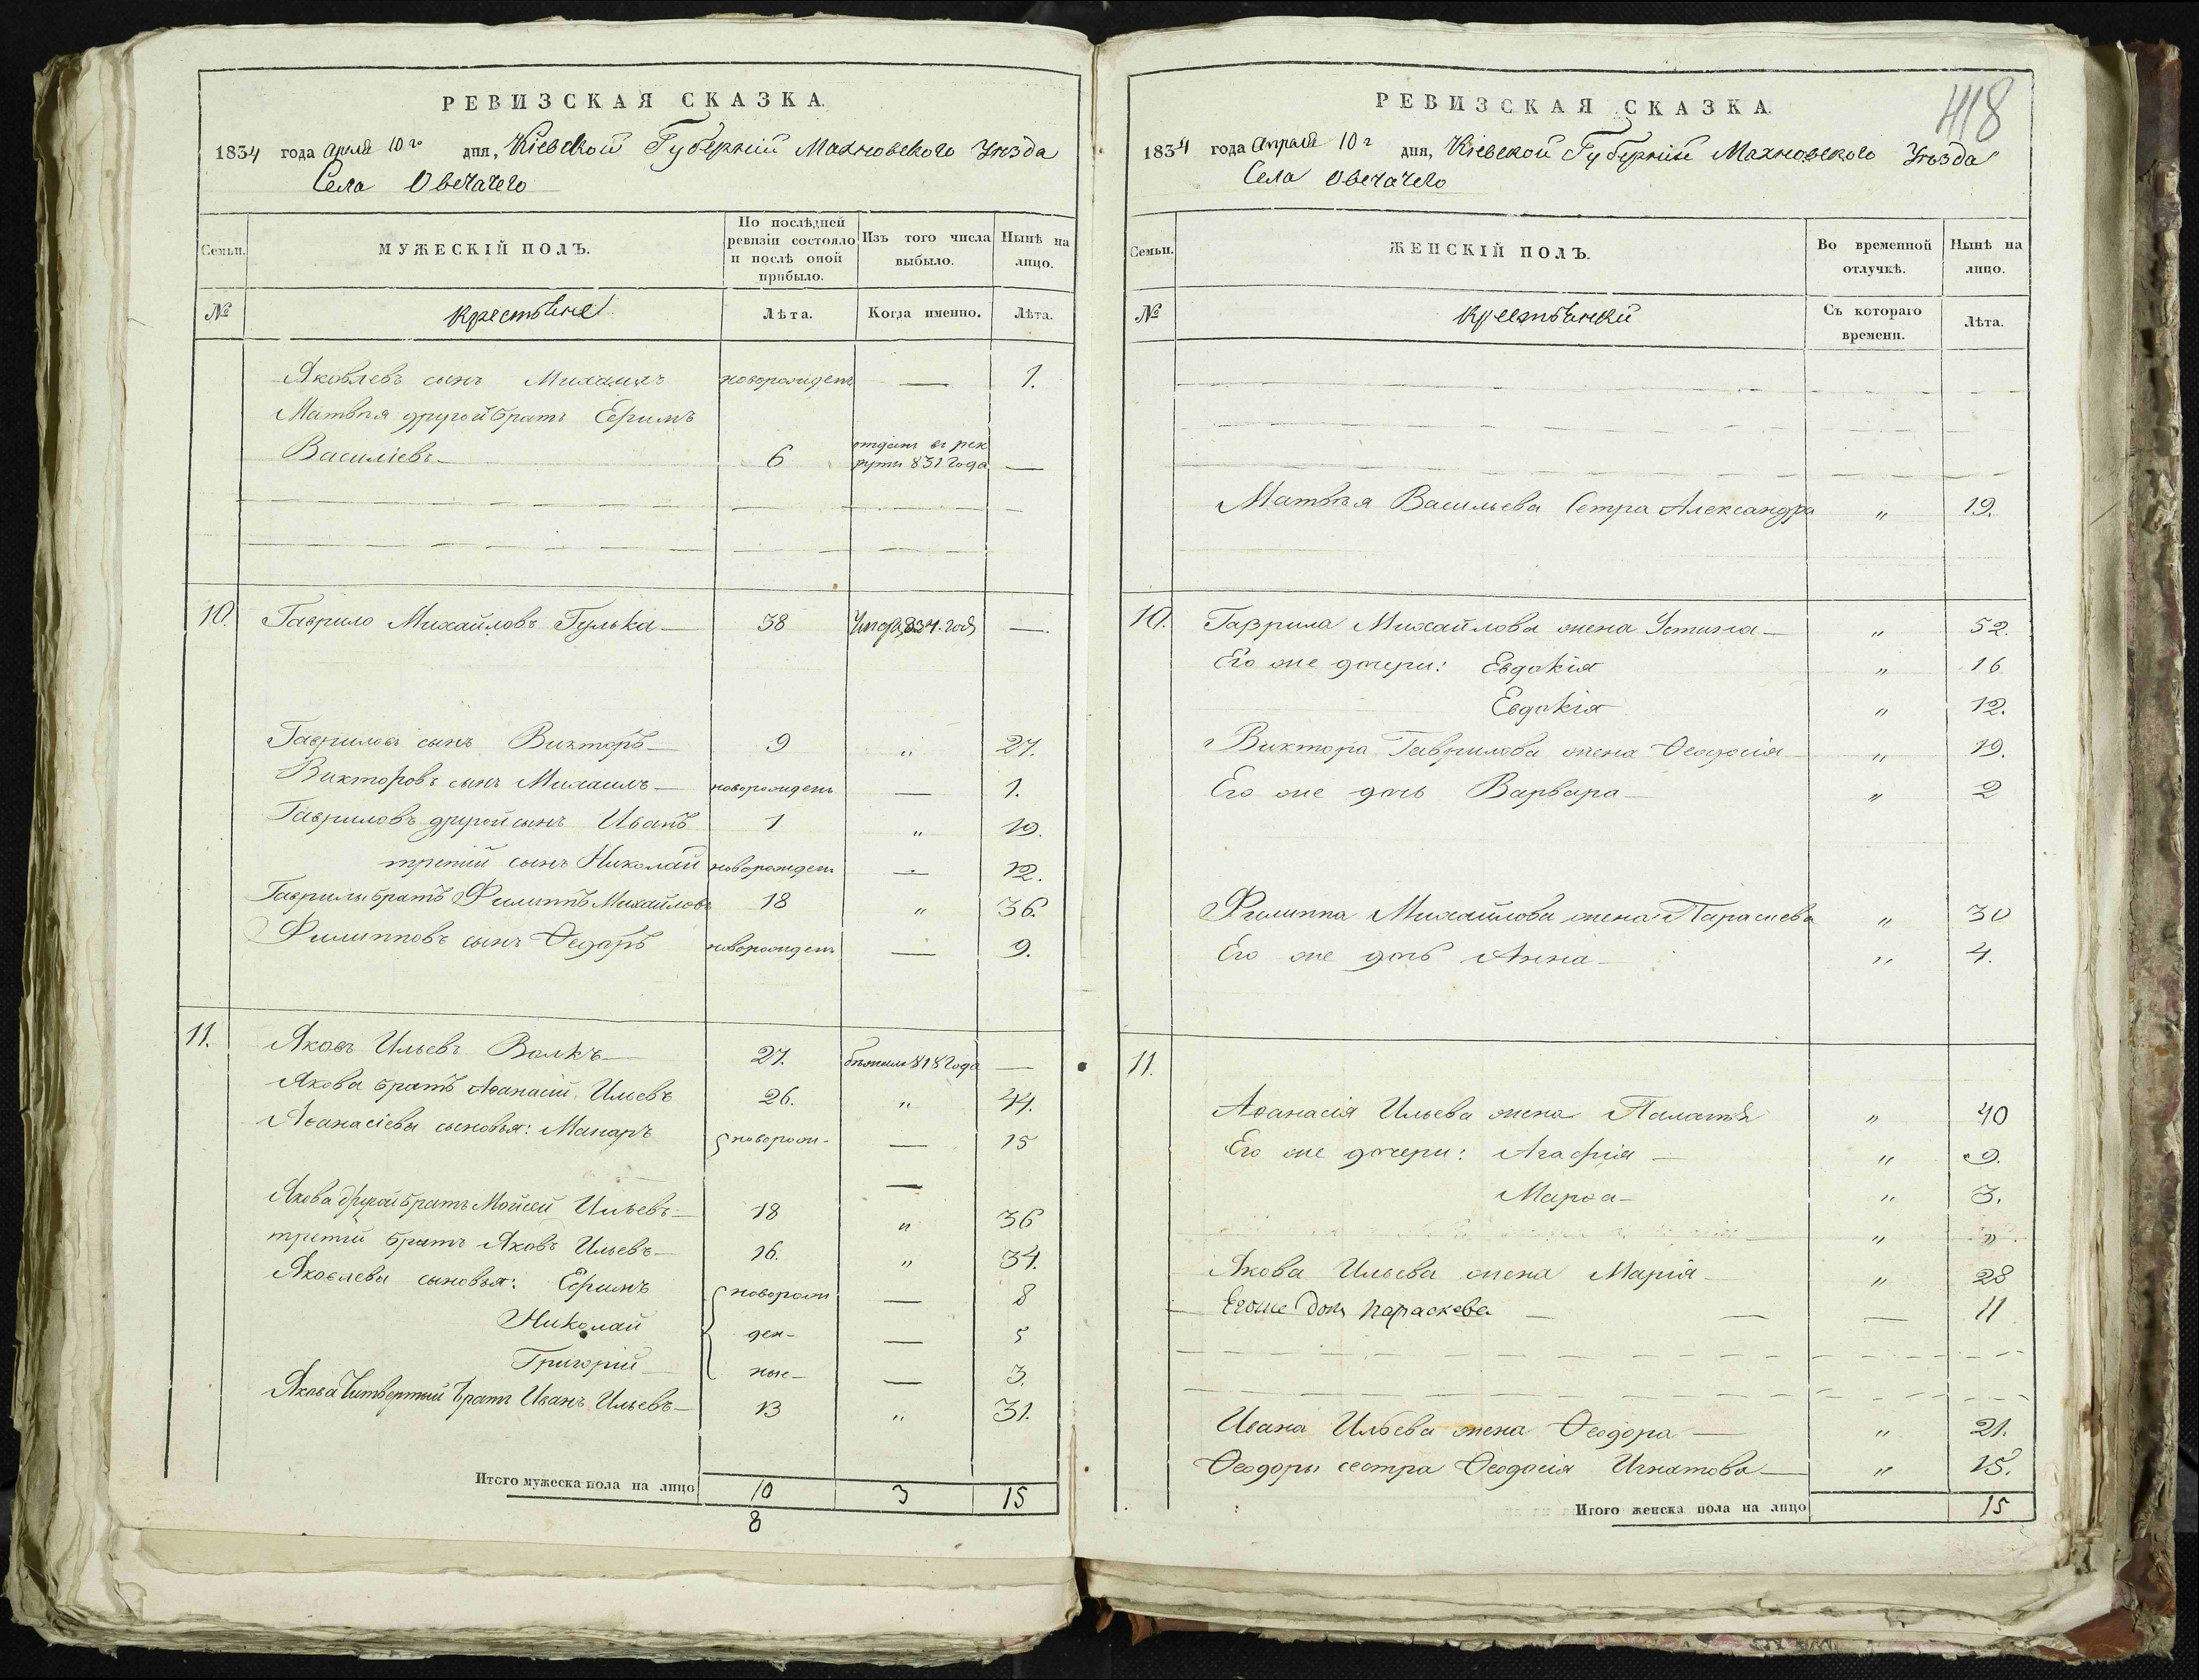 РЕВИЗСКАЯ СКАЗКА.
1834 года Апреля 10го дня, Кіевской Губерніи Махновскаго Уѣзда
Села Овечачего
Семьи.
МУЖЕСКІЙ ПОЛЪ.
По послѣдней ревизіи состояло и послѣ оной прибыло.
Изъ того числа выбыло.
Нынѣ на лицо.
№
Крестьяне
Лѣта.
Когда именно.
Лѣта.
Яковлевъ сынъ Михаилъ новорожден — 1.
Матвѣя другой братъ Ефимъ
Василіевъ — 6 отданъ въ рек руты 831 года —
10. Гаврило Михайловъ Гулька — 38 834. года —
Гавриловъ сынъ Викторъ — 9 „ 27.
Викторовъ сынъ Михаилъ — новорожден — 1.
Гавриловъ другой сынъ Иванъ 1 „ 19.
третій сынъ Николай новорожден — 12.
Гаврилы братъ Филиппъ Михайловъ 18 „ 36.
Филипповъ сынъ Ѳедоръ новорожден — 9.
11. Яковъ Ильевъ Волкъ — 27. бѣжалъ 818 года —
Якова братъ Аѳанасій Ильевъ 26. „ 44.
Аѳанасіевы сыновья: Макаръ новорож- — 15
—
Якова другой братъ Мойсей Ильевъ — 18 „ 36
третій братъ Яковъ Ильевъ — 16. „ 34.
Яковлевы сыновья: Ефимъ новорож — 8
Николай ден- — 5
Григорій ные- — 3.
Якова Читвертый братъ Иванъ Ильевъ — 13 „ 31.
Итого мужеска пола на лицо 10 3 15
8
418
РЕВИЗСКАЯ СКАЗКА.
1834 года Апреля 10г дня, Кіевской Губерніи Махновскаго Уѣзда
Села Овечачего
Семьи.
ЖЕНСКІЙ ПОЛЪ.
Во временной отлучкѣ.
Нынѣ на лицо.
№
Крестьянки
Съ котораго времени.
Лѣта.
Матвѣя Васильева Сетра Александра „ 19.
10. Гаврила Михайлова жена Устина — „ 52.
Его же дочери: Евдокія „ 16
Евдокія „ 12.
Виктора Гаврилова жена Ѳеодосія „ 19.
Его же дочь Варвара — „ 2
Филиппа Михайлова жена Параскева „ 30
Его же дочь Анна — „ 4.
11.
Аѳанасія Ильева жена „ 40
Его же дочери: Агафія — „ 9.
Марѳа — „ 3.
„ „
Якова Ильева жена Марія — „ 28
Егоже дочь Параскева — — — 11
Ивана Ильева жена Ѳеодора — „ 21.
Ѳеодоры сестра Ѳеодосія Игнатова — „ 15.
Итого женска пола на лицо 15